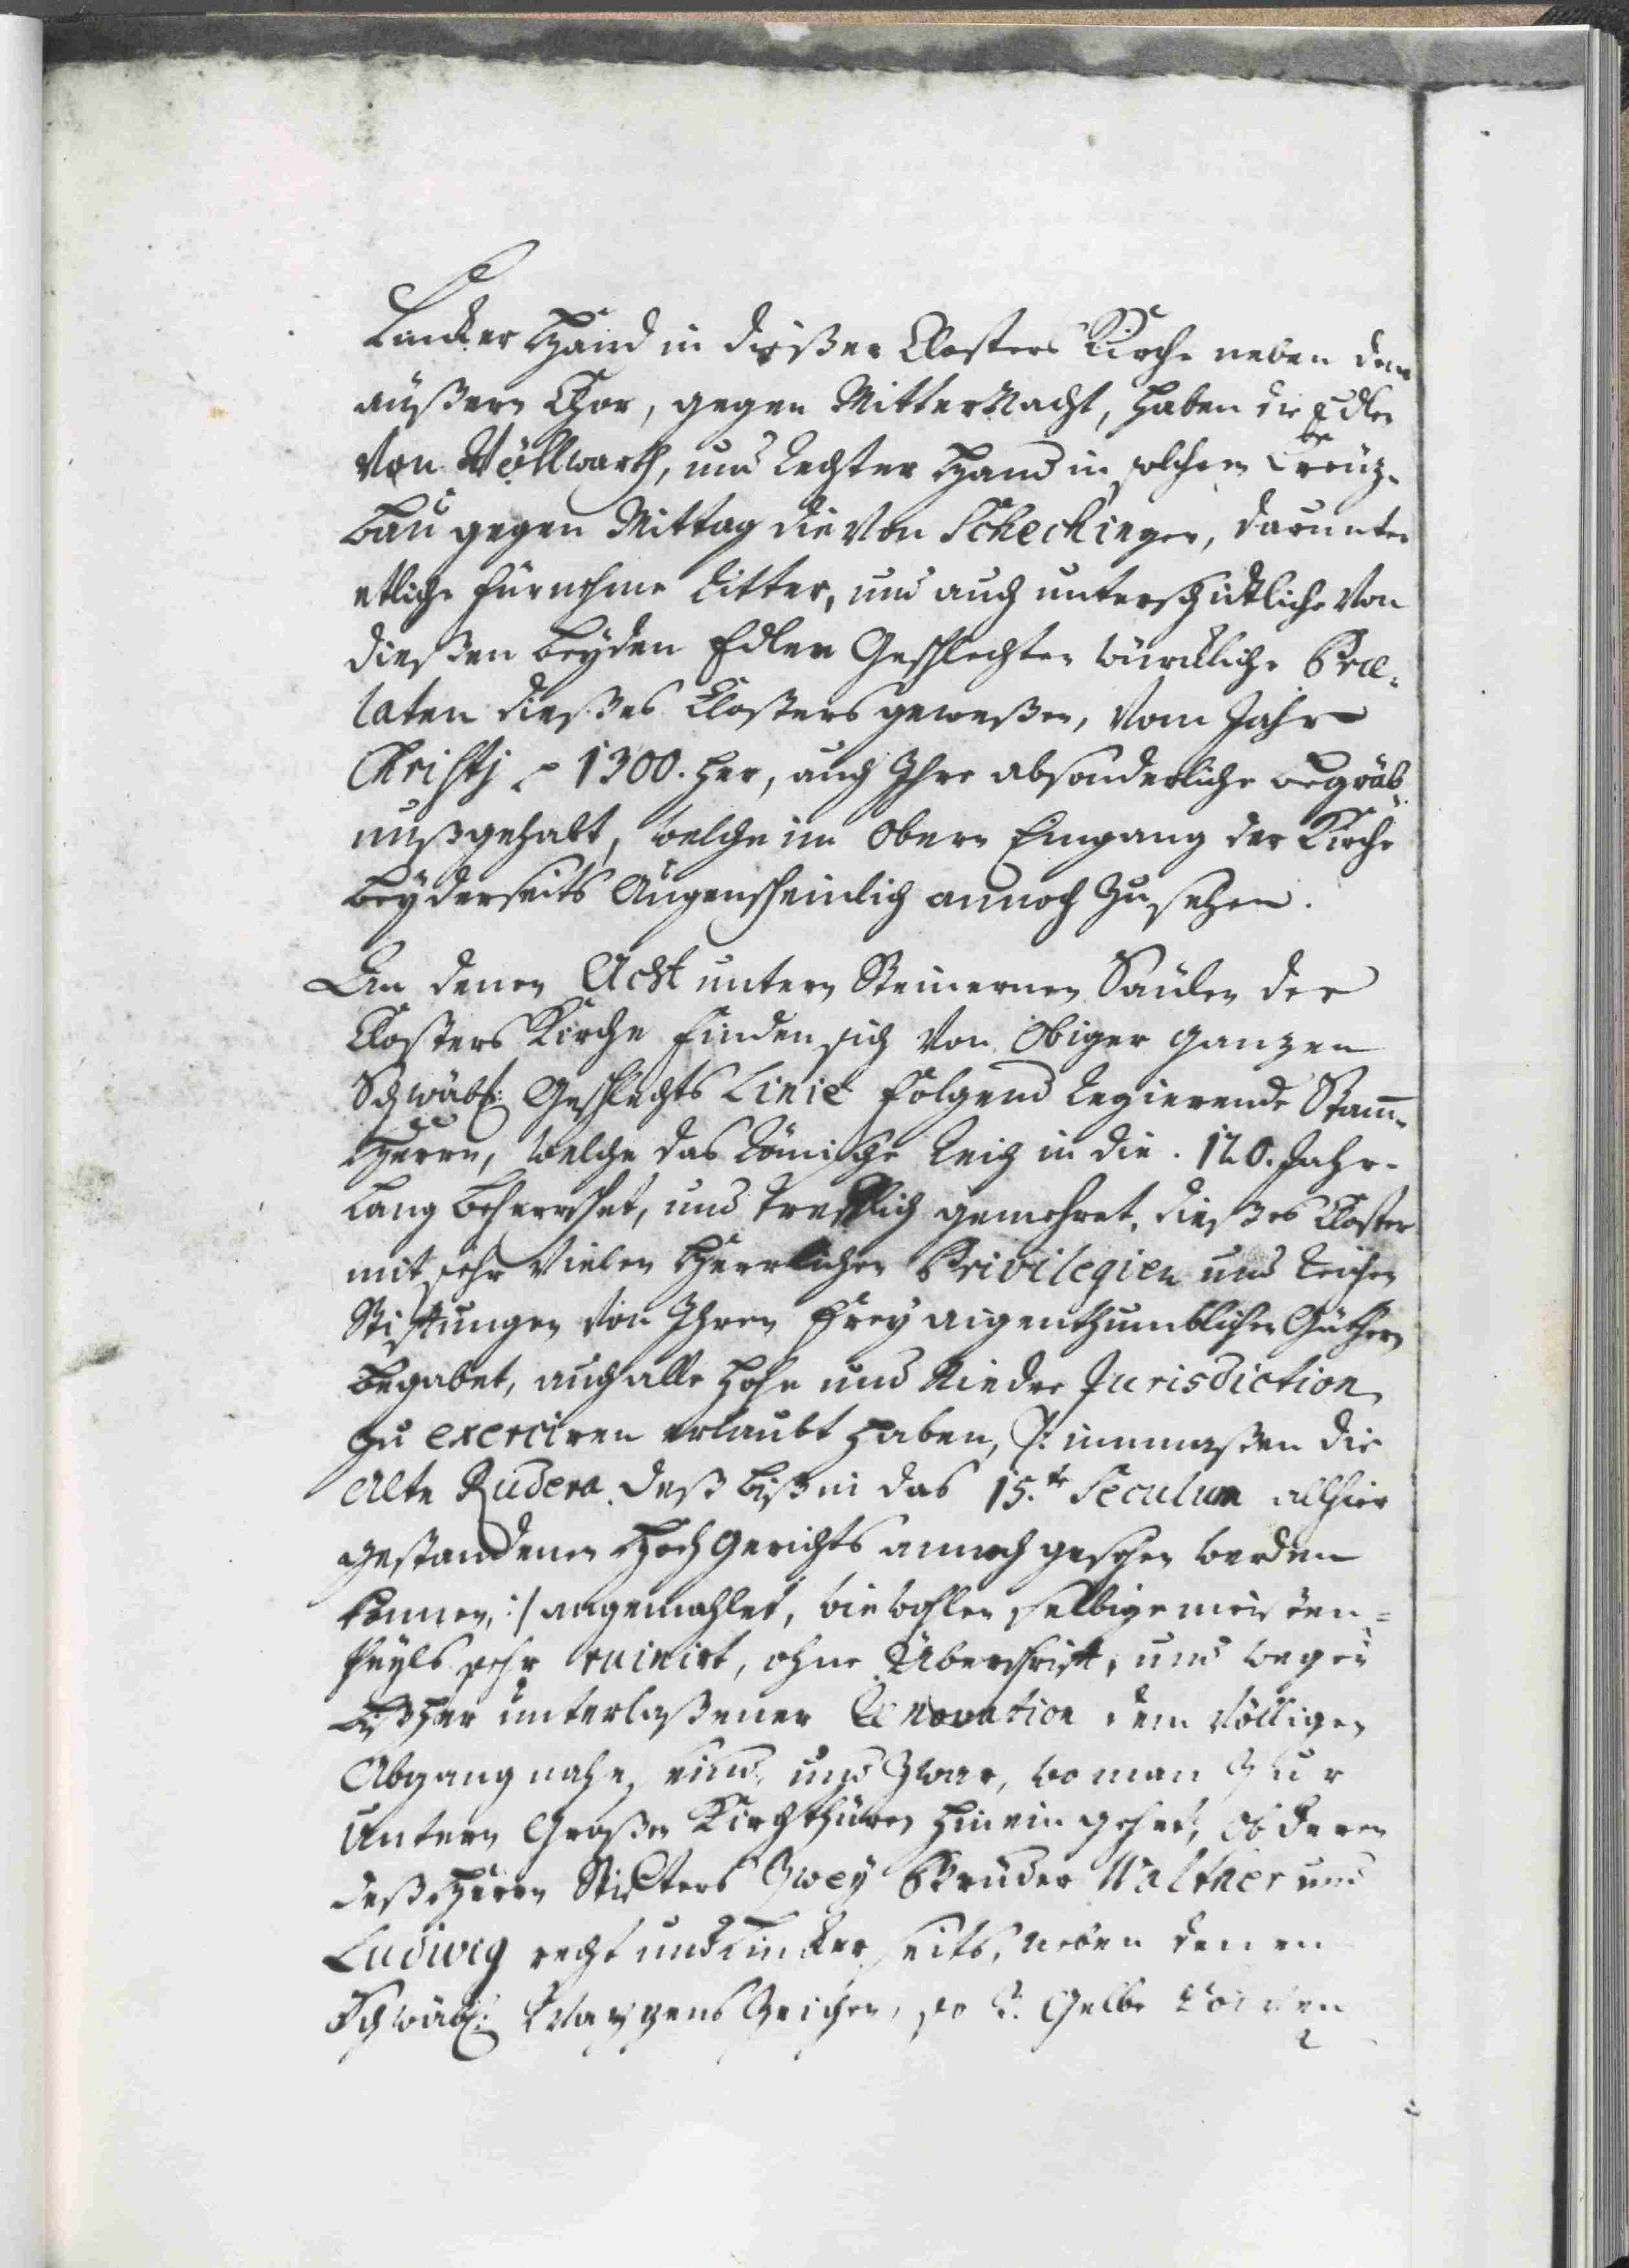 Lincker Hand in dißer Closters Kirche neben dem
äußern Chor, gegen MitterNacht, haben die Edlen
von Wöllwarth, und rechter Hand in solchem Creüz-
bau gegen Mittag die von Schechingen, darunter
etliche fürnehme Ritter, und auch unterschidtliche von
dießen beyden Edlen Geschlechter würckliche Præ-
laten dießes Closters geweßen, vom Jahr
Christj 1300. her, auch Ihre absonderliche begräb-
nuß gehabt, welche im Obern Eingang der Kirche
beyderseits Augenscheinlich annoch zu sehen.
An denen Acht untern Steinernen Säulen der
Closters Kirche finden sich von Obiger ganzen
Schwäb: Geschlechts Linie folgend Regierende Stam-
Herrn, welche das Römische Reich in die 120. Jahr-
lang beherrschet, und trefflich gemehret, dießes Closter
mit sehr vielen Herrlichen Privilegien und Reichen
Stifftungen von Ihren frey aigenthumblichen Güthern
begabet, auch alle hohe und Niedre Jurisdiction
zu exerciren erlaubt haben, /: immaßen die
Alte Rudera deß biß in das 15.te Seculum allhier
gestandenen HochGerichts annoch gesehen werden
können, :/ angemahlet, wiewohlen selbige meisten=
theyls sehr ruinirt, ohne Überschrifft, und wegen
bißher unterlaßener Renovation dem völligen
Abgang nahe sind, und zwar, wo man zur
Untern Großen Kirchthüren hinein gehet, ob deren
deß Herrn Stiffters Zwey Brüder Walther und
Ludwig recht und Lincker seits, neben denen
Schwäb: Wappens Zeichen, so 3. Gelbe Löwen